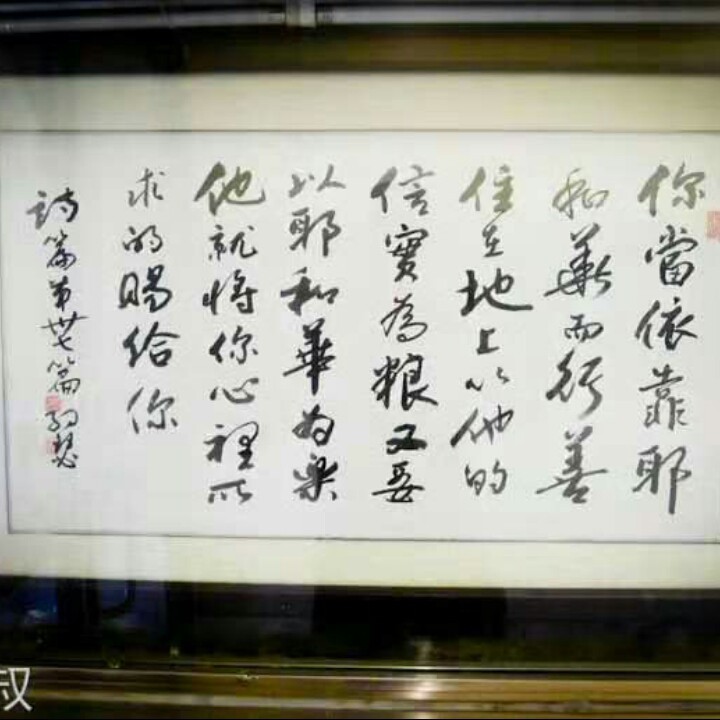 你當依靠耶
和華而行善
住在地上以他的
信實為粮又要
以耶和華為樂
他就將你心裡所
求的賜給你
詩篇第卅七篇
叔